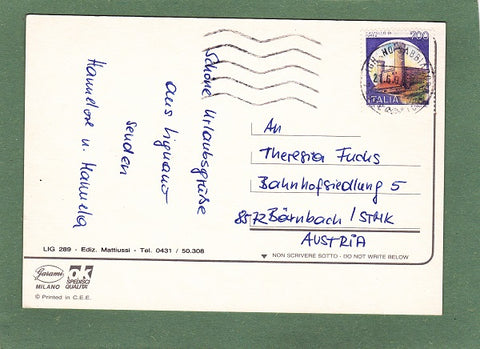 Schöne Urlaubsgrüße
aus Lignano
senden
Hannelore u. Manuela
200
ITALIA
An
Theresia Fuchs
Bahnhofsiedlung 5
8572 Bärnbach / STMK
AUSTRIA
LIG 289 - Ediz. Mattiussi - Tel. 0431 / 50.308
NON SCRIVERE SOTTO - DO NOT WRITE BELOW
Garami
MILANO
ok
SPEDIRCI
QUALITÀ
© Printed in C.E.E.